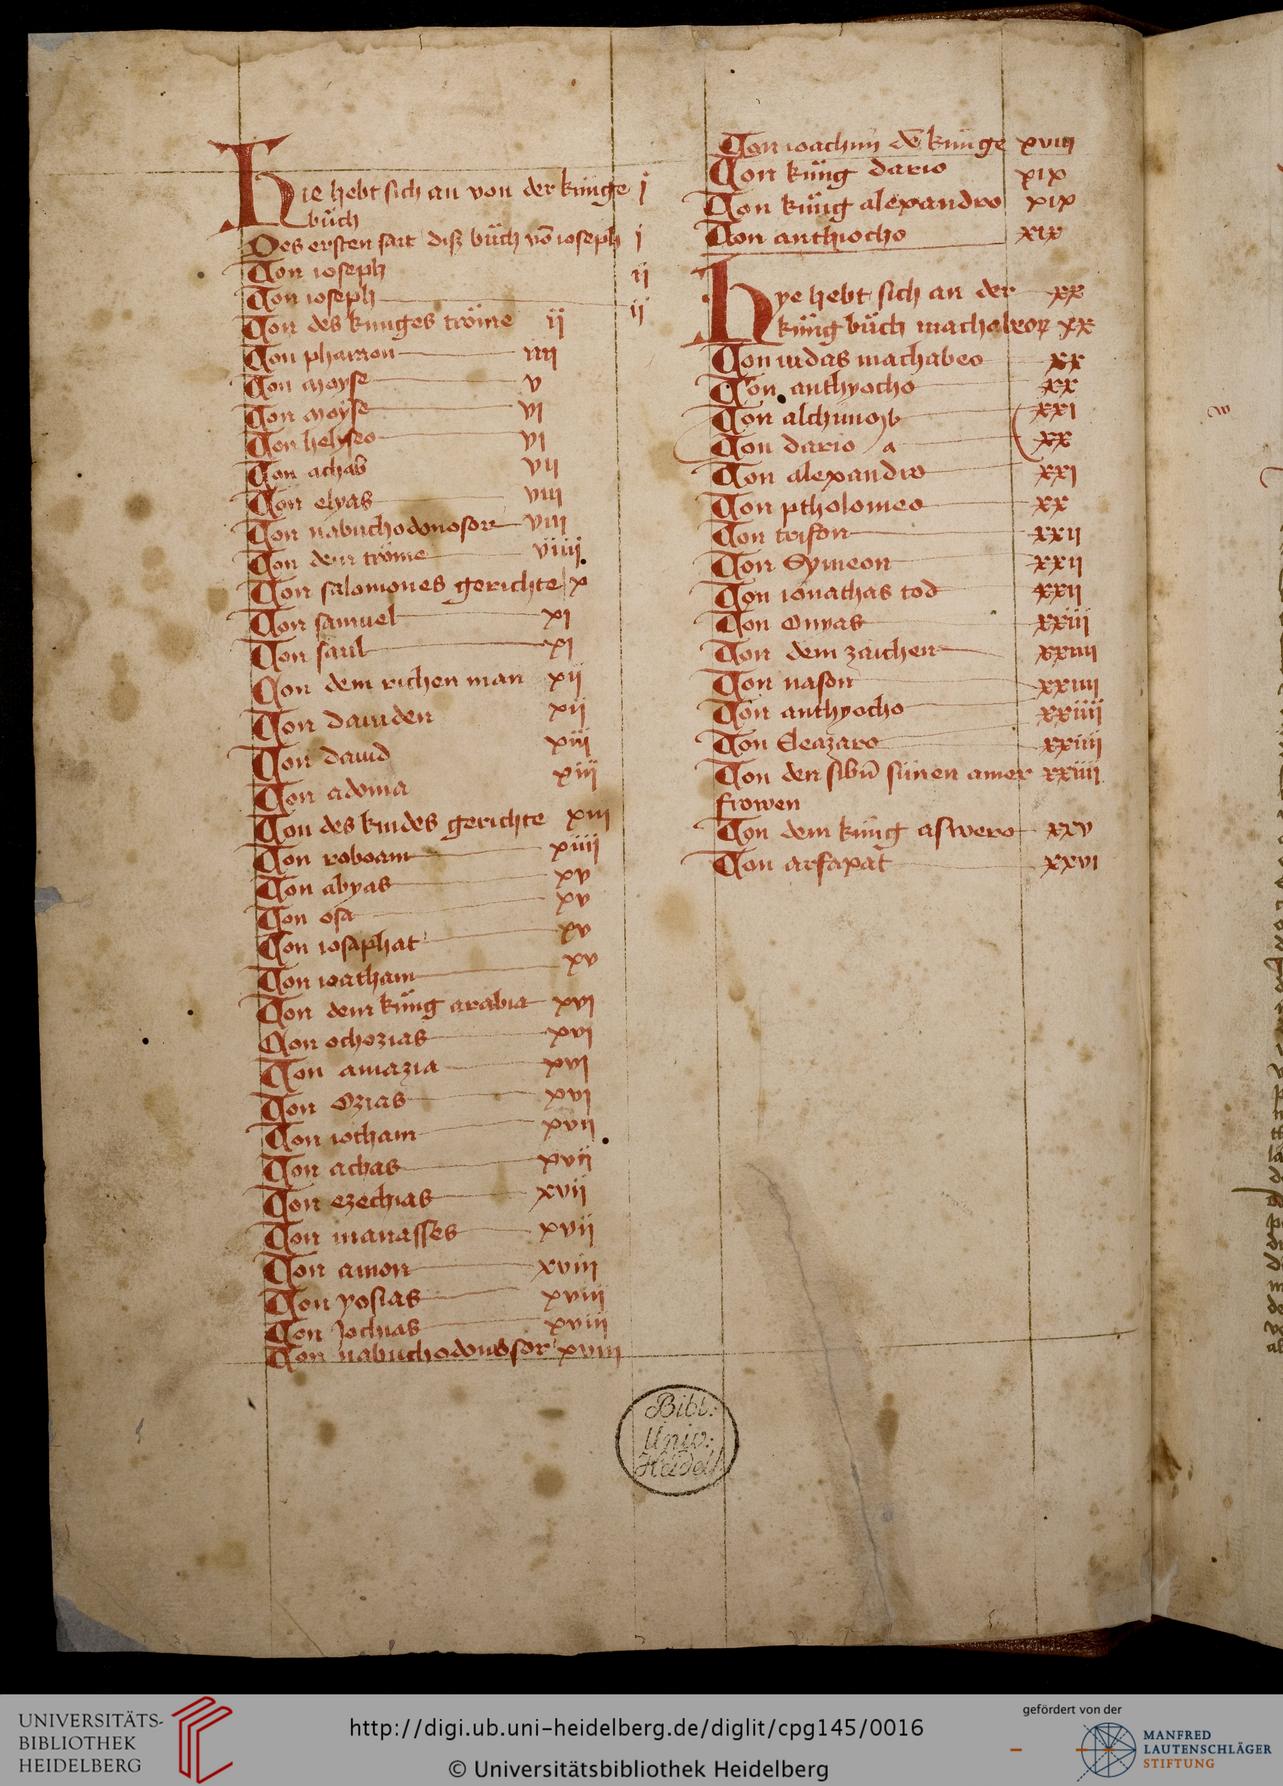 Hie hebt sich an von der künge j
bůch
Des ersten sait diß bůch võ ioseph j
Von ioseph ij
Von ioseph ij
Von des kunges tröme ij
Von pharaon iiij
Von moyse v
Von moyse vj
Von helyseo vj
Von achab vij
Von elyas viij
Von nabuchodonosor viij
Von dem tröme viiij
Von salomones gerichte x
Von samuel xj
Von saul xj
Von dem richen man xij
Von dauiden xij
Von dauid xiij
Von adonia xiij
Von des kindes gerichte xiij
Von roboam xiiij
Von abyas xv
Von osa xv
Von iosaphat xv
Von ioatham xv
Von dem küng arabia xvj
Von ochozias xvj
Von amazia xvj
Von Ozias xvj
Von iotham xvij
Von achas xvij
Von ezechias xvij
Von manasses xvij
Von amon xviij
Von yosias xviij
Von Jochas xviij
Von nabuchodonosor xviij
Von ioachim dē künge xviij
Von küng dario xix
Von küng alexandro xix
Von anthiocho xix
Hye hebt sich an der xx
küng bůch machabeoꝝ xx
Von iudas machabeo xx
Von anthyocho xx
Von alchimo b xxj
Von dario a xx
Von alexandro xxj
Von ptholomeo xx
Von trifon xxij
Von Symeon xxij
Von ionathas tod xxij
Von Onyas xxiij
Von dem zaichen xxiiij
Von nason xxiiij
Von anthyocho xxiiij
Von Eleazaro xxiiij
Von den sibñ sünen ainer xxiiij
frowen
Von dem küng aswero xxv
Von arfaxat xxvj
Bibl:
Univ:
Heidelb.
UNIVERSITÄTS-
BIBLIOTHEK
HEIDELBERG
http://digi.ub.uni-heidelberg.de/diglit/cpg145/0016
© Universitätsbibliothek Heidelberg
gefördert von der
MANFRED
LAUTENSCHLÄGER
STIFTUNG